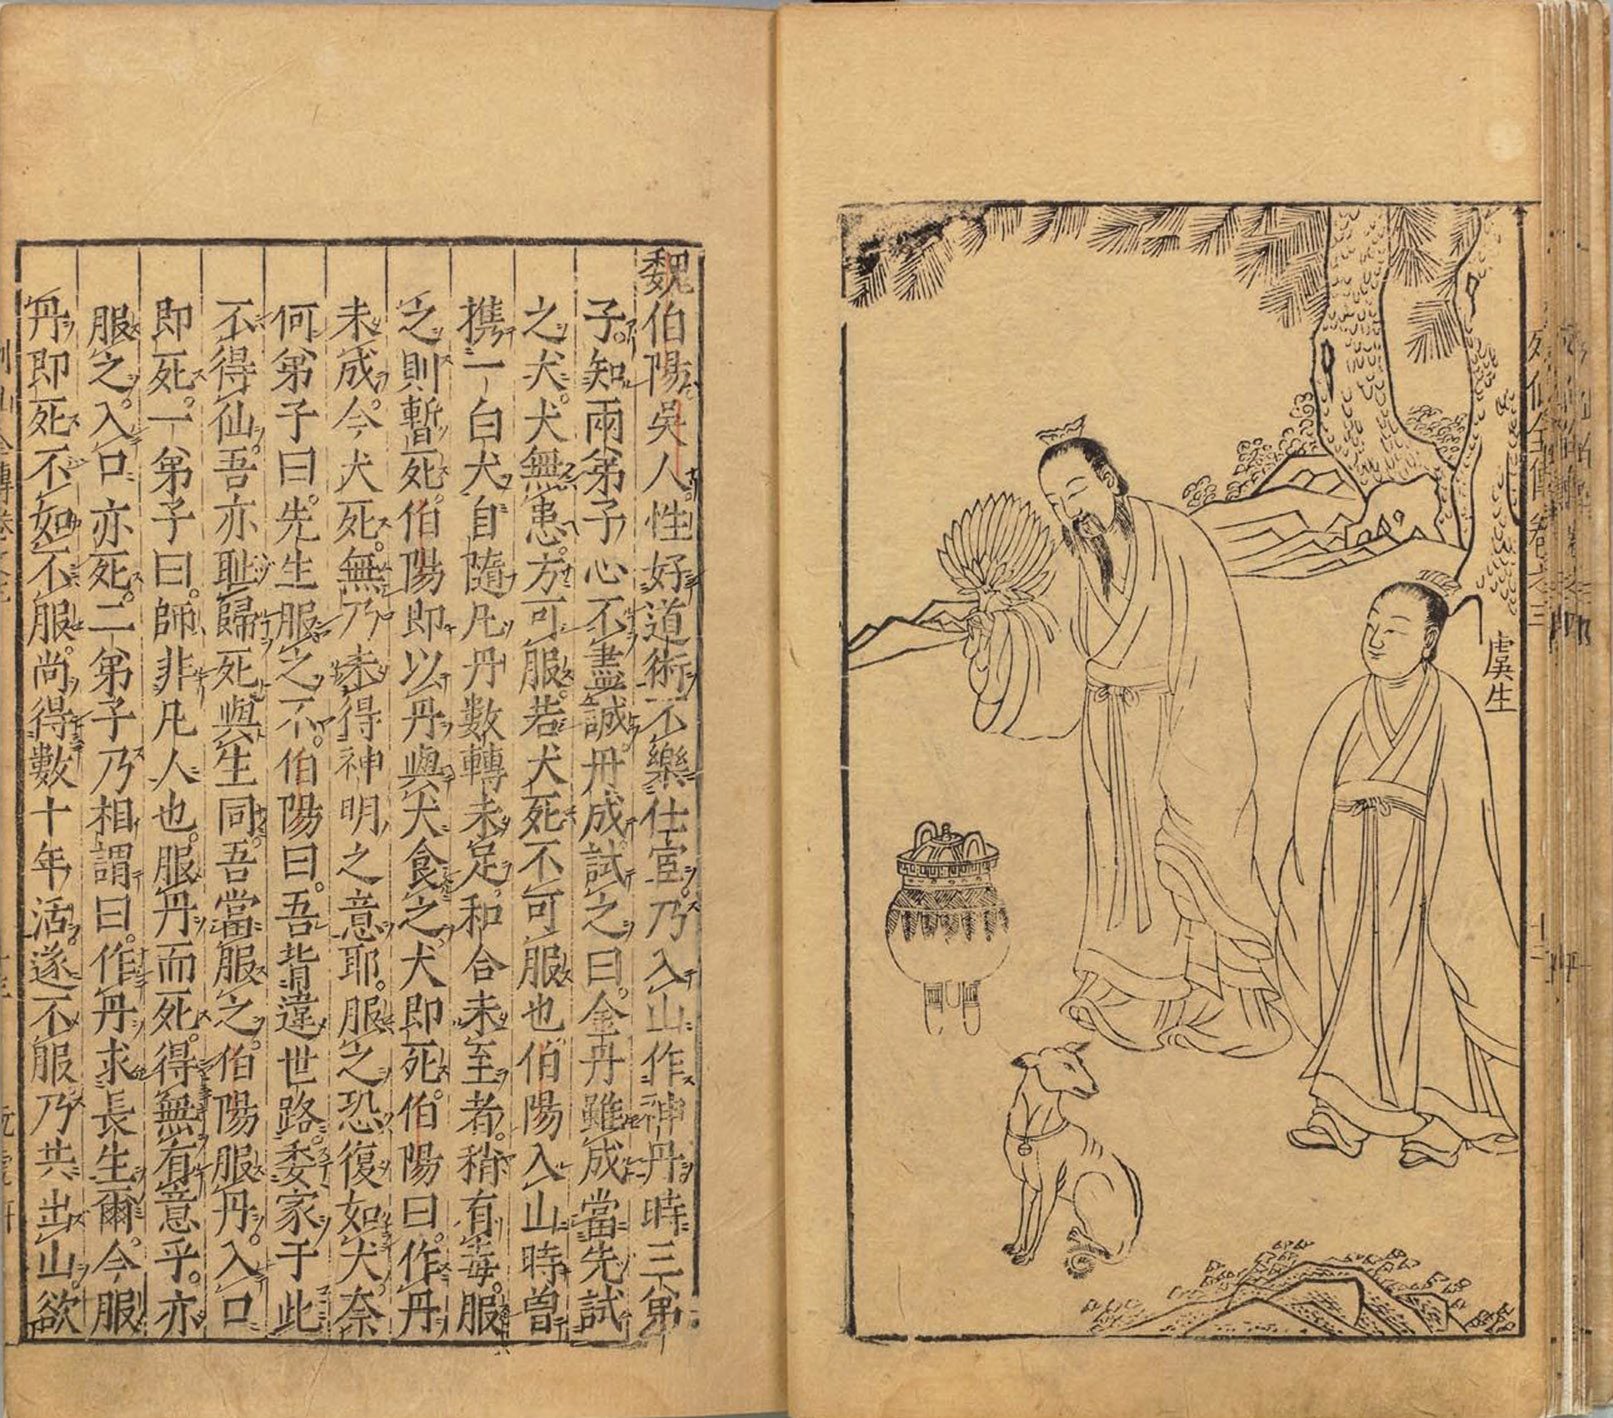 列仙全傳卷之三
十二
虞生
魏伯陽吳人性好道術不樂仕宦乃入山作神丹時三弟
子知兩弟子心不盡誠丹成試之曰金丹雖成當先試
之犬犬無患方可服若犬死不可服也伯陽入山時曾
携一白犬自隨凡丹數轉未足和合未至者稍有毒服
之則暫死伯陽即以丹與犬食之犬即死伯陽曰作丹
未成今犬死無乃未得神明之意耶服之恐復如犬奈
何弟子曰先生服之不伯陽曰吾背違世路委家于此
不得仙吾亦耻歸死與生同吾當服之伯陽服丹入口
即死一弟子曰師非凡人也服丹而死得無有意乎亦
服之入口亦死二弟子乃相謂曰作丹求長生爾今服
丹即死不如不服尚得數十年活遂不服乃共出山欲